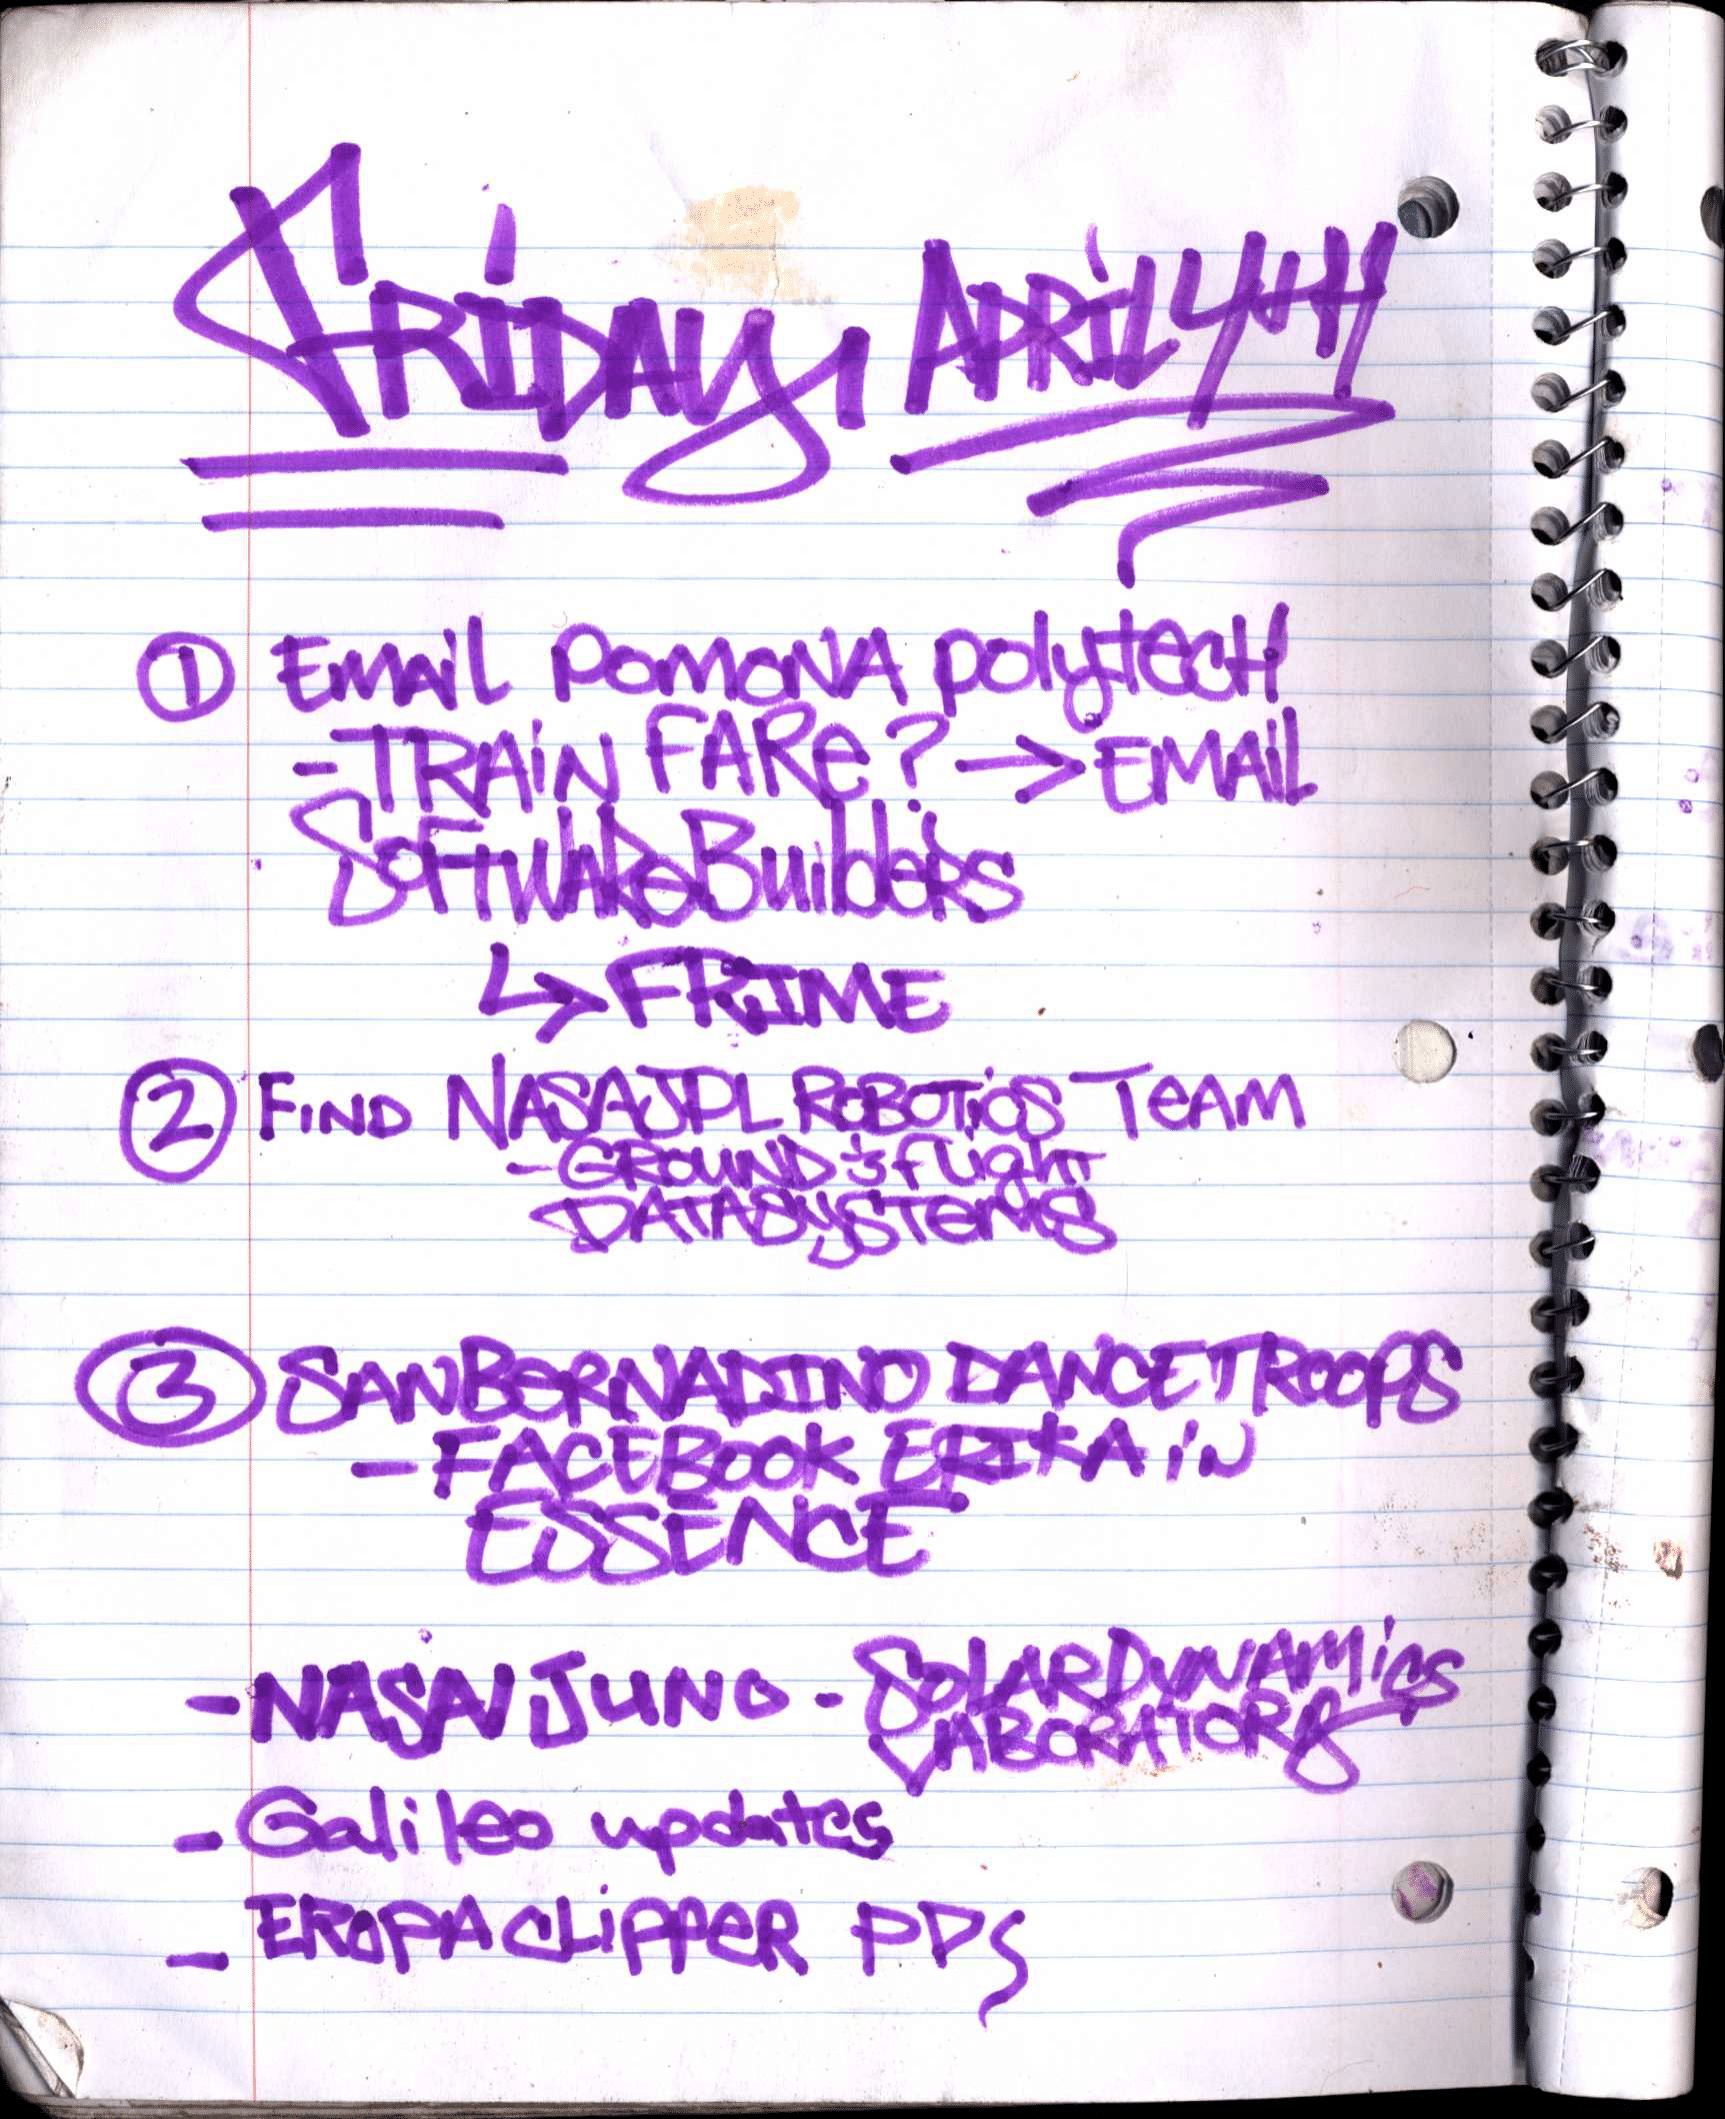 Friday, April 4th
1 Email Pomona Polytech
- Train Fare? → Email
Software Builders
↳ FRIME
2 Find NASA JPL Robotics Team
- Ground & flight
Data Systems
3 San Bernadino Dance Troops
- Facebook Erika in
Essence
- NASA Juno - Solar Dynamics
Laboratory
- Galileo updates
- Eropa Clipper PDS